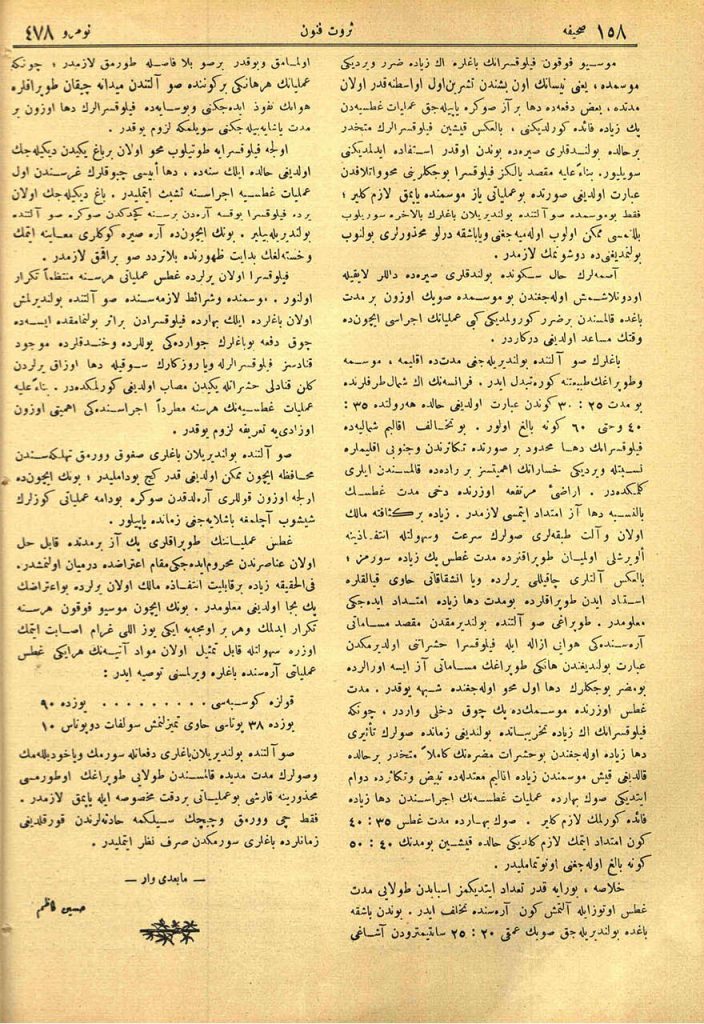 ١٥٨ صحیفه
ثروت فنون
نومرو ٤٧٨
موسیو فوقون فیلوقسرانك باغلره اك زیاده ضرر ویردیكی
موسمده ، یعنی نیسانك اون بشندن تشرین اول اواسطنه قدر اولان
مدتده ، بعض دفعه ده دها بر آز صوكره یاپیله جق عملیات غطسیه دن
پك زیاده فائده كورلدیكنی ، بالعكس قیشین فیلوقسرالرك متخدر
برحالده بولندقلری صیره ده بوندن اوقدر استفاده ایدلمدیكنی
سویلیور. بناءً علیه مقصد یالكز فیلوقسرا بوجكلرینی محوواتلافدن
عبارت اولدیغی صورتده بوعملیاتی یاز موسمنده یاپمق لازم كلیر ؛
فقط بوموسمده صو آلتنده بولندیریلان باغلرك بالآخره سوریلوب
بللنمسی ممكن اولوب اوله میه جغنی ویاباشقه درلو محذورلری بولنوب
بولنمدیغنی ده دوشونمك لازمدر .
آصمه لرك حال سكونده بولندقلری صیره ده داللر لایقیله
اودونلاشمش اوله جغندن بو موسمده صویك اوزون بر مدت
باغده قالمسندن بر ضرر كورولمدیكی كبی عملیاتك اجراسی ایچون ده
وقتك مساعد اولدیغی دركاردر .
باغلرك صو آلتنده بولندیریله جغی مدت ده اقلیمه ، موسمه
وطوپراغك طبیعتنه كوره تبدل ایدر . فرانسه نك اك شمال طرفلرنده
بو مدت ٢٥ : ٣٠ كوندن عبارت اولدیغی حالده هه رولتده ٣٥ :
٤٠ وحتی ٦٠ كونه بالغ اولور . بو تخالف اقالیم شمالیه ده
فیلوقسرانك دها محدود بر صورتده تكاثرندن وجنوبی اقلیملره
نسبتله ویردیكی خسارانك اهمیتسز بر راده ده قالمسندن ایلری
كلمكده در . اراضیٔ مرتفعه اوزرنده دخی مدت غطسك
بالنسبه دها آز امتداد ایتمسی لازمدر . زیاده بر كثافته مالك
اولان وآلت طبقه لری صولرك سرعت وسهولتله انتفاذینه
ألویرشلی اولمیان طوپراقلرده مدت غطس پك زیاده سورمز ؛
بالعكس آلتلری چاقیللی یرلرده ویا انشقاقاتی حاوی قیالقلره
استناد ایدن طوپراقلرده بومدت دها زیاده امتداد ایده جكی
معلومدر . طوپراغی صو آلتنده بولندیرمقدن مقصد مساماتی
آره سنده كی هوایی ازاله ایله فیلوقسرا حشراتنی اولدیرمكدن
عبارت بولندیغندن هانكی طوپراغك مساماتی آز ایسه اورالرده
بومضر بوجكلرك دها اول محو اوله جغنده شبهه یوقدر . مدت
غطس اوزرنده موسمك ده پك چوق دخلی واردر ، چونكه
فیلوقسرانك اك زیاده تخریباتده بولندیغی زمانده صولرك تأثیری
دها زیاده اوله جغندن بوحشرات مضره نك كاملاً متخدر برحالده
قالدیغی قیش موسمندن زیاده اقالیم معتدله ده تبیض وتكاثرده دوام
ایتدیكی صوك بهارده عملیات غطسیه نك اجراسندن دها زیاده
فائده كورلمك لازم كلیر . صوك بهارده مدت غطس ٣٥ : ٤٠
كون امتداد ایتمك لازم كلدیكی حالده قیشین بومدتك ٤٠ : ٥٠
كونه بالغ اوله جغی اونوتماملیدر .
خلاصه ، بورایه قدر تعداد ایتدیكمز اسبابدن طولایی مدت
غطس اوتوزایله آلتمش كون آره سنده تخالف ایدر . بوندن باشقه
باغده بولندیریله جق صویك عمقی ٢٠ : ٢٥ سانتیمترودن آشاغی
اولمامق وبوقدر برصو بلا فاصله طورمق لازمدر ؛ چونكه
عملیاتك هرهانكی بر كوننده صو آلتندن میدانه چیقان طوپراقلره
هوانك نفوذ ایده جكنی وبوسایه ده فیلوقسرالرك دها اوزون بر
مدت یاشایه بیله جكنی سویلمكه لزوم یوقدر .
اولجه فیلوقسرایه طوتیلوب محو اولان بر باغ یكیدن دیكیله جك
اولدیغی حالده ایلك سنه ده ، دها أییسی چبوقلرك غرسندن اول
عملیات غطسیه اجراسنه تشبث ایتملیدر . باغ دیكیله جك اولان
یرده فیلوقسرا یوقسه آره دن برسنه كچدكدن صوكره صو آلتنده
بولندیریله بیلیر . بونك ایچون ده آره صیره كوكلری معاینه ایتمك
وخسته لغك بدایت ظهورنده بلاتردد صو براقمق لازمدر .
فیلوقسرا اولان یرلرده غطس عملیاتی هرسنه منتظماً تكرار
اولنور . موسمنده وشرائط لازمه سنده صو آلتنده بولندیرلمش
اولان باغلرده ایلك بهارده فیلوقسرادن براثر بولنمامقده ایسه ده
چوق دفعه بو باغلرك جوارده كی یوللرده وخندقلرده موجود
قنادسز فیلوقسرالرله ویا روزكارك سوقیله دها اوزاق یرلردن
كلن قنادلی حشراتله یكیدن مصاب اولدیغی كورلمكده در . بناءً علیه
عملیات غطسیه نك هرسنه مطرداً اجراسنده كی اهمیتی اوزون
اوزادی یه تعریفه لزوم یوقدر .
صو آلتنده بولندیریلان باغلری صغوق وورمق تهلكه سندن
محافظه ایچون ممكن اولدیغی قدر كیج بودامالیدر ؛ بونك ایچون ده
اولجه اوزون قوللری آره لدقدن صوكره بودامه عملیاتی كوزلرك
شیشوب آچلمغه باشلایه جغی زمانده یاپیلور .
غطس عملیاتنك طوپراقلری پك آز برمدتده قابل حل
اولان عناصرندن محروم ایده جكی مقام اعتراضده درمیان اولنمشدر.
فی الحقیقه زیاده بر قابلیت انتفاذه مالك اولان یرلرده بواعتراضك
پك بجا اولدیغی معلومدر . بونك ایچون موسیو فوقون هرسنه
تكرار ایدلمك وهر بر اومجه یه ایكی یوز اللی غرام اصابت ایتمك
اوزره سهولتله قابل تمثیل اولان مواد آتیه نك هرایكی غطس
عملیاتی آره سنده باغلره ویرلمسنی توصیه ایدر :
قولزه كوسبه سی . . . . . . . . . یوزده ٩٠
یوزده ٣٨ پوتاسی حاوی تمیزلنمش سولفات دوپوتاس ١٠
صو آلتنده بولندیریلان باغلری دفعاتله سورمك ویاخود بللمك
وصولرك مدت مدیده قالمسندن طولایی طوپراغك اوطورمسی
محذورینه قارشی بوعملیاتی بر دقت مخصوصه ایله یاپمق لازمدر .
فقط چی وورمق وچیچك سیلكمه حادثه لرندن قورقلدیغی
زمانلرده باغلری سورمكدن صرف نظر ایتملیدر .
— مابعدی وار —
حسین كاظم